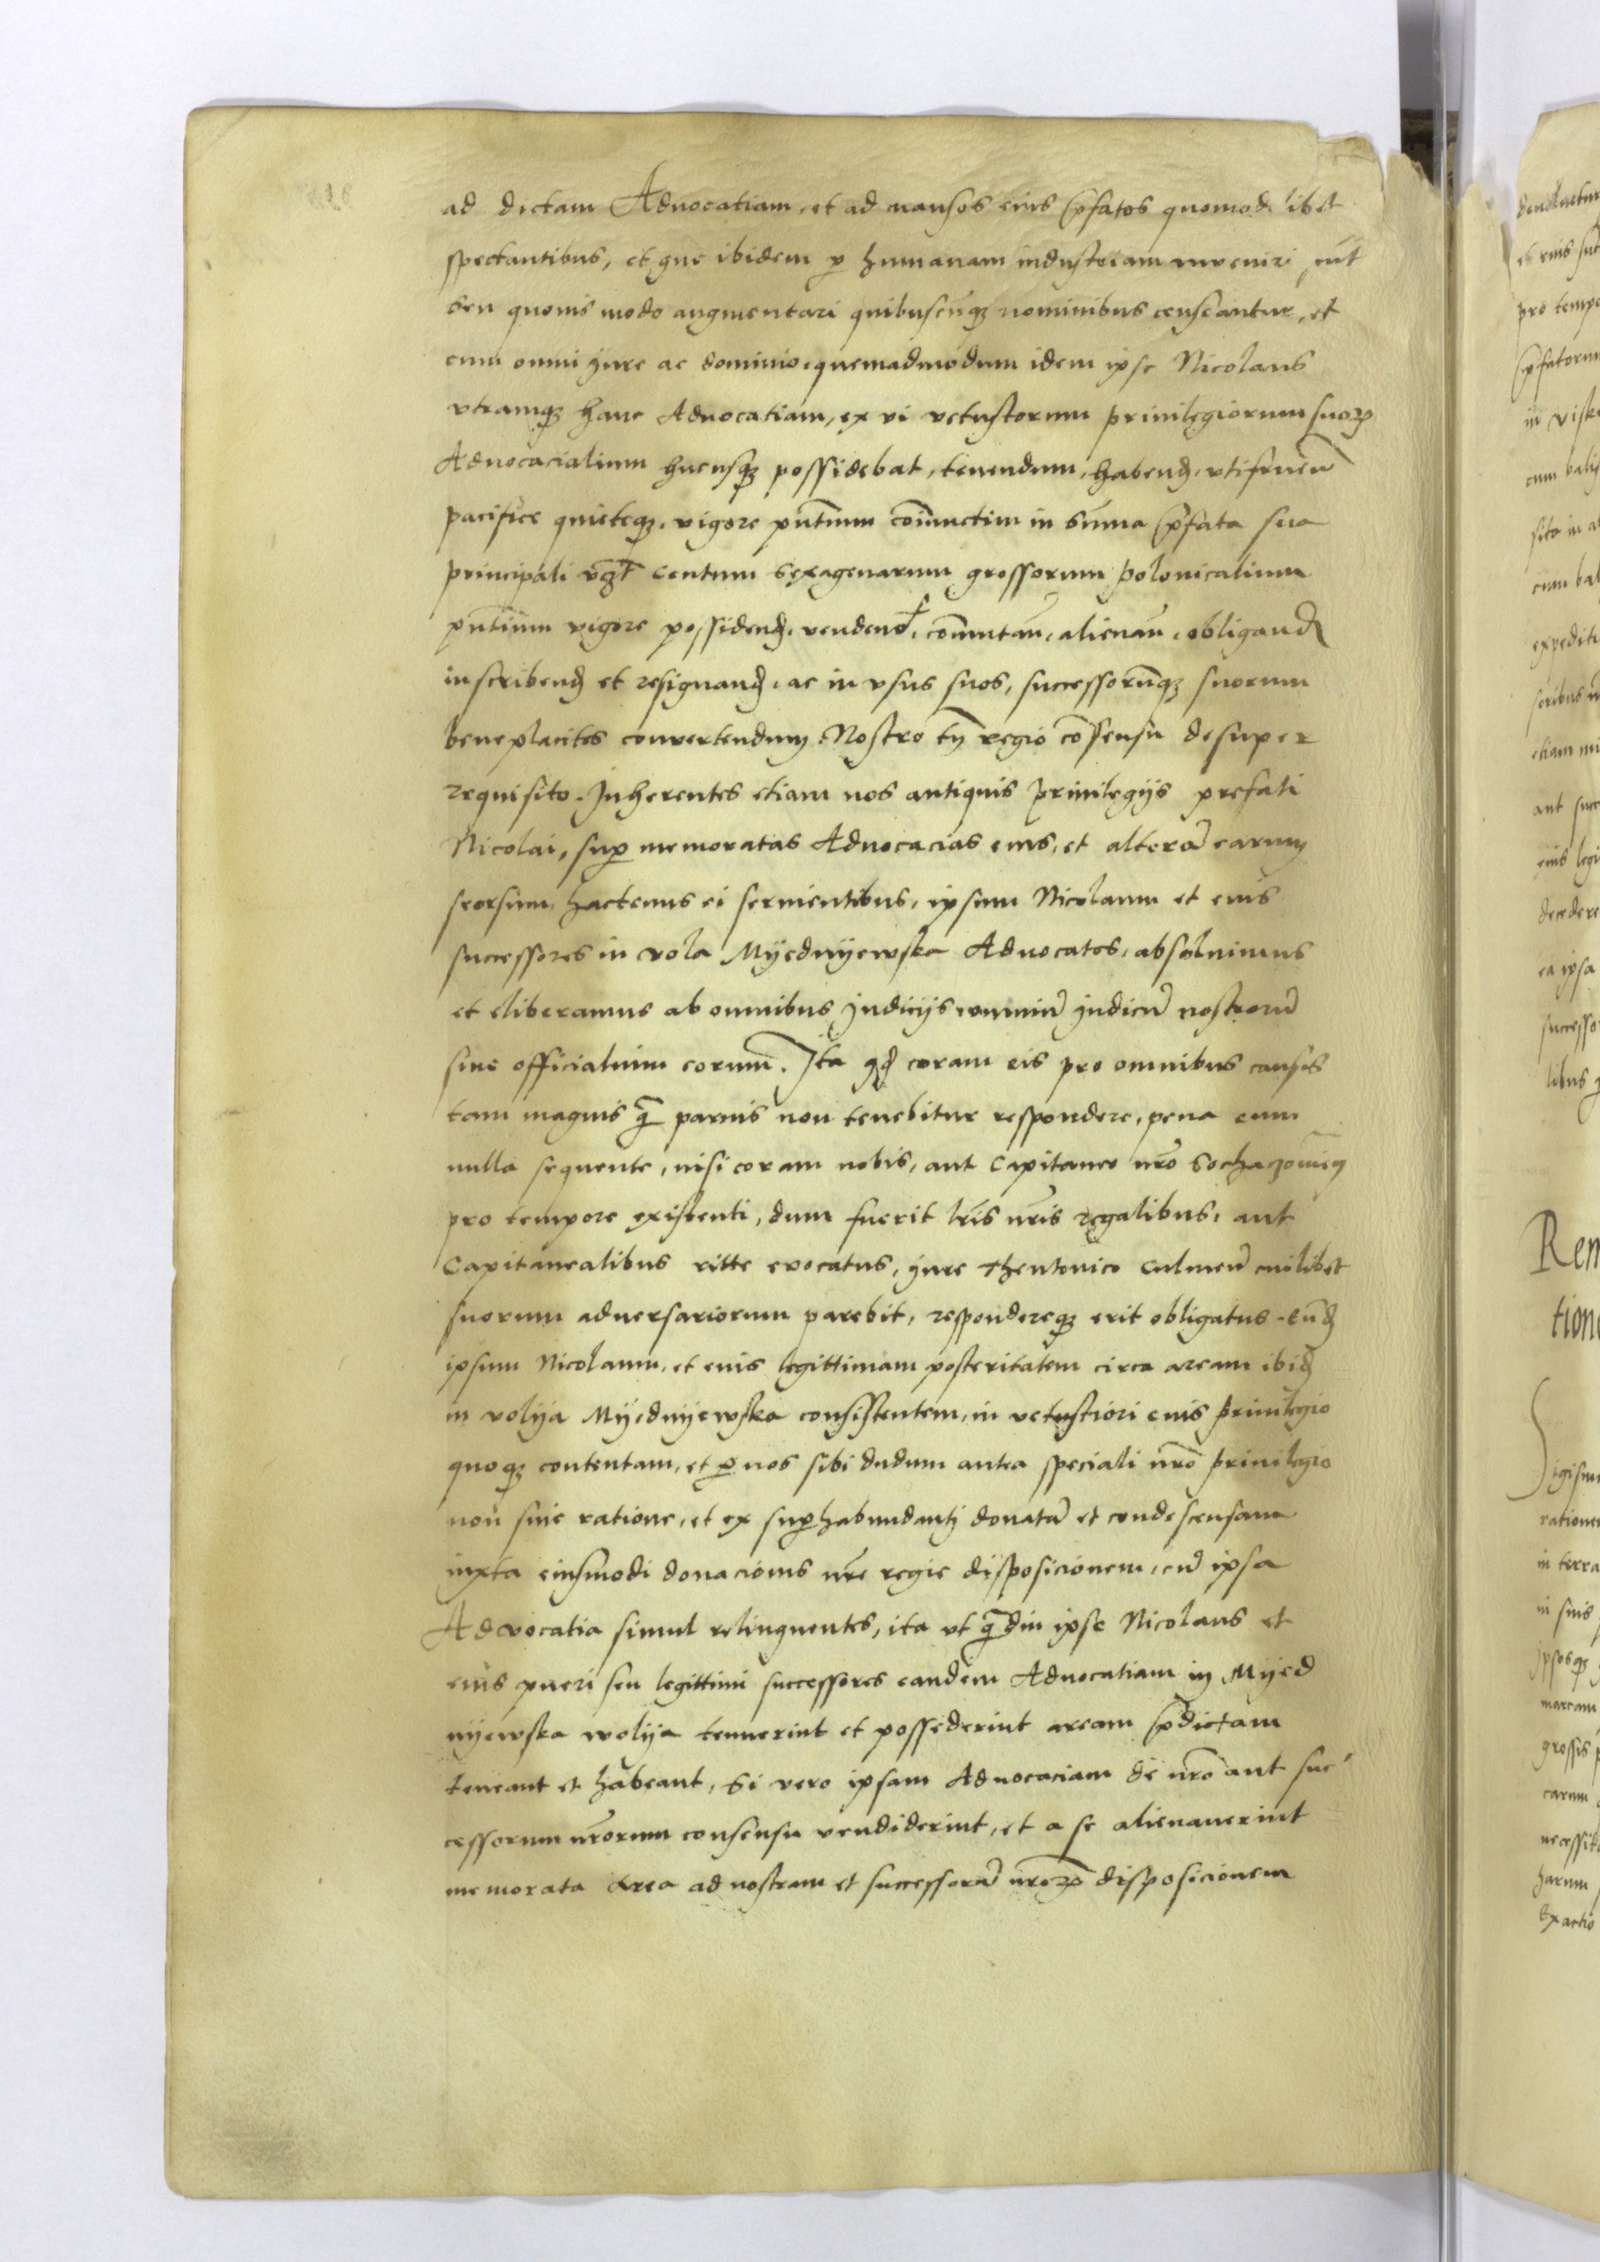 ad dictam Advocatiam, et ad mansos eius p̃fatos quomodolibet
spectantibus, et que ibidem p humanam industriam inveniri
seu quovis modo augmentari quibuscūqz nominibus censeantur, et
cum omni jure ac dominio, quemadmodum idem ipse Nicolaus
vtramqz hanc Advocatiam, ex vi vetustorum privilegiorum suoꝝ
Advocacialium hucusqz possidebat, tenendum, habend̄, vtifruen̄
pacifice quieteqz, vigore pn̄tium coniunctim in sūma p̃fata sua
principali centum sexagenarum grossorum polonicalium
pn̄tium vigore possidend̄, vendend̄, com̄utan̄, alienan̄, obligand̄
inscribend̄ et resignand̄, ac in vsus suos, successorūqz suorum
beneplacitos convertendum. Nostro tn̄ regio cōsensu desuper
requisito. Inherentes etiam nos antiquis privilegijs prefati
Nicolai, sup memoratas Advocacias eius, et alterā earum
seorsum hactenus ei servientibus, ipsum Nicolaum et eius
successores in vola Myednyewska Advocatos, absolvimus
et eliberamus ab omnibus judicijs omniū judicū nostrorū
sive officialium eorum. Ita qd̄ coram eis pro omnibus causis
tam magnis q̄ parvis non tenebitur respondere, pena eum
nulla sequente, nisi coram nobis, aut Capitaneo nr̄o Sochaczovien̄
pro tempore existenti, dum fuerit lr̄is nr̄is regalibus, aut
Capitanealibus ritte evocatus, jure Theutonico Culmen̄ cuilibet
suorum adversariorum parebit, respondereqz erit obligatus. Eund̄
ipsum Nicolaum, et eius legittimam posteritatem circa aream ibid̄
in volya Myednyewska consistentem, in vetustiori eius privilegio
quoqz contentam, et p nos sibi dudum antea speciali nr̄o privilegio
non sine ratione, et ex suphabundanti donatā et condescensam
iuxta eiusmodi donacionis nr̄e regie disposicionem, cū ipsa
Advocatia simul relinquentes, ita vt q̄diu ipse Nicolaus et
eius pueri seu legittimi successores eandem Advocatiam in Myed
nyewska wolya tenuerint et possederint aream p̃dictam
teneant et habeant, Si vero ipsam Advocaciam de nr̄o aut suc
cessorum nr̄orum consensu vendiderint, et a se alienaverint
memorata Area ad nostram et successorū nr̄oꝝ disposicionem